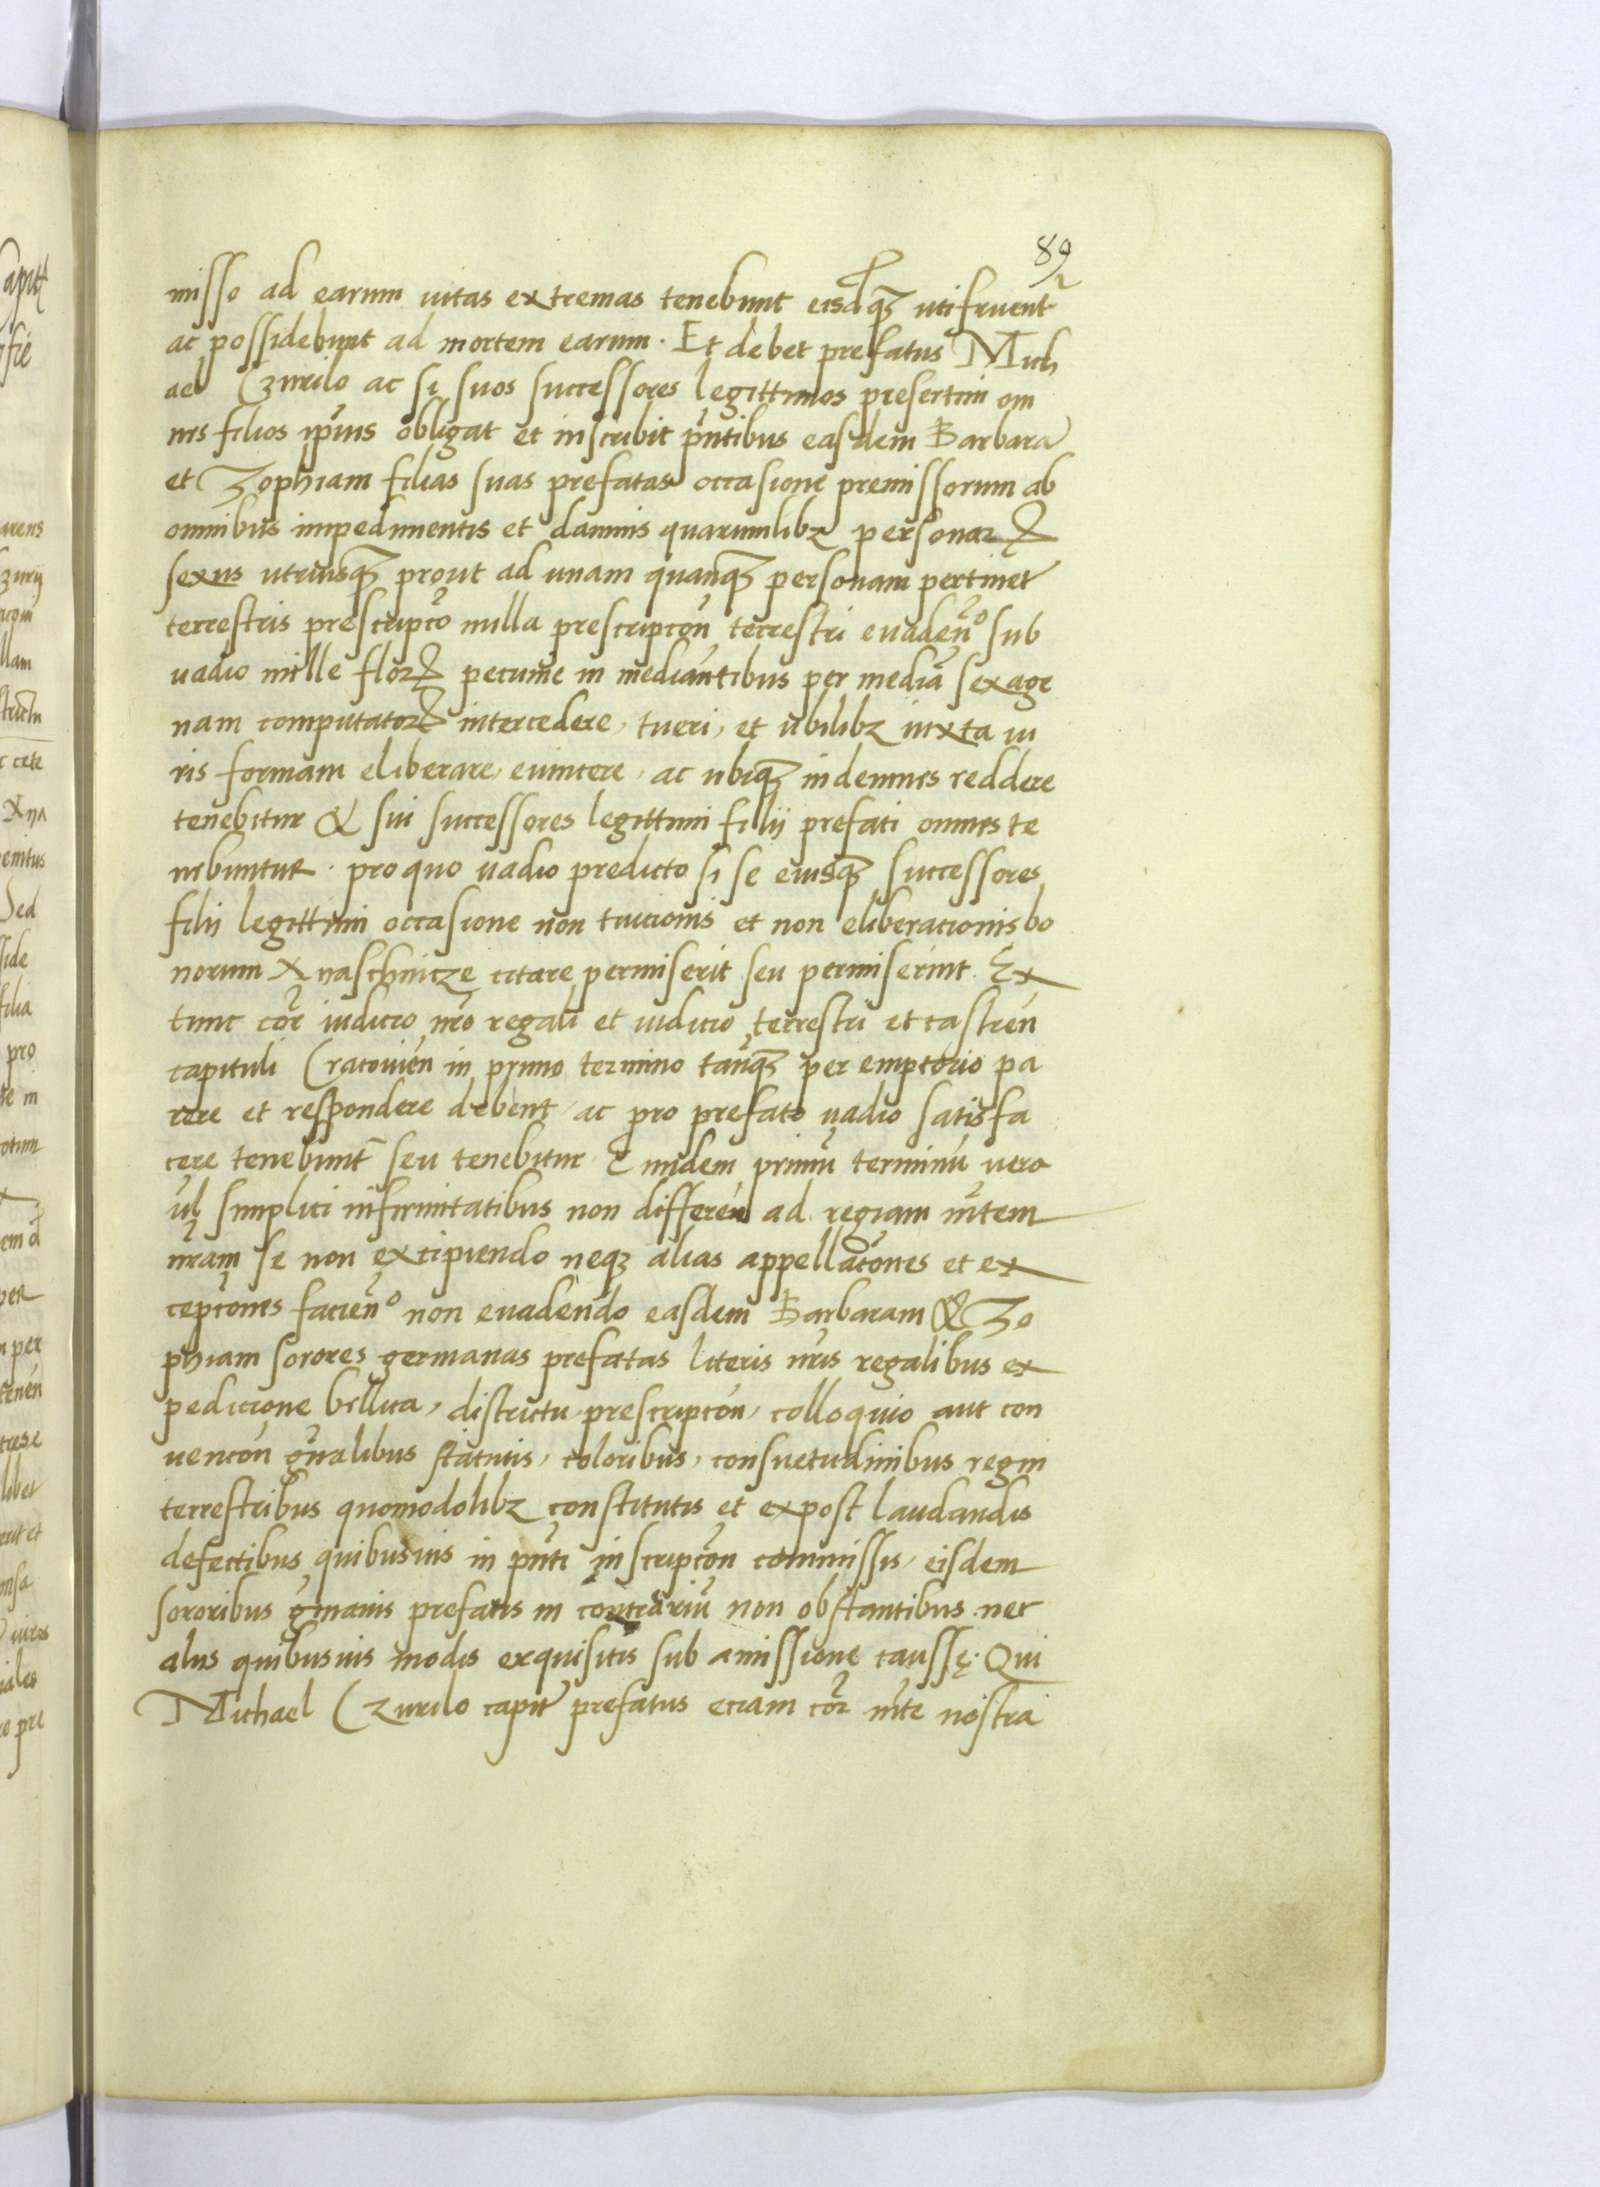 89
misso ad earum vitas extremas tenebunt eisdq3 utifruentr
ac possidebunt ad mortem earum. Et debet prefatus Mich
ael Czurilo ac si suos successores legittimos presertim om
nes filios ipīus obligat et inscribit pn̄tibus easdem Barbarā
et Zophiam filias suas prefatas occasione premissorum ab
omnibus impedimentis et damnis quarumlibꝫ personarꝝ
sexus utriusqꝫ prout ad unam quanqꝫ personam pertinet
terrestris prescripto nulla prescripcōn terrestri evadeno sub
vadio mille florꝝ pecunie in mediantibus per mediā sexage
nam computatorꝝ intercedere, tueri, et ubilibꝫ iuxta iu
ris formam eliberare, evincere, ac ubiqꝫ indemnes reddere
tenebitur & sui successores legittimi filii prefati omnes te
nebuntur. pro quo vadio predicto si se eiusqꝫ successores
filii legittimi occasione non tuicionis et non eliberacionis bo
norum Xnaschnicze citare permiserit seu permiserint Ex
tunc cor iudicio nro regali et iudicio terrestri et castren
capituli Cracovien in primo termino tanqꝫ peremptorio pa
rere et respondere debent, ac pro prefato vadio satisfa
cere tenebunt seu tenebitur Eundem primū terminū vera
vl simplici infirmitatibus non differen ad regiam mtem
nram se non excipiendo neqꝫ alias appellacōnes et ex
cepcōnes facieno non evadendo easdem Barbaram & Zo
phiam sorores germanas prefatas literis nris regalibus ex
pedicione bellica, districtu prescripcōn, colloquio aut con
vencōn gn̄alibus statutis, coloribus, consuetudinibus regni
terrestribus quomodolibꝫ constitutis et expost laudandis
defectibus quibusvis in pn̄ti inscripcōn commissis, eisdem
sororibus gmanis prefatis in contrariū non obstantibus nec
aliis quibusvis modis exquisitis sub amissione caussę. Qui
Michael Czurilo capit prefatus eciam cor mte nostra